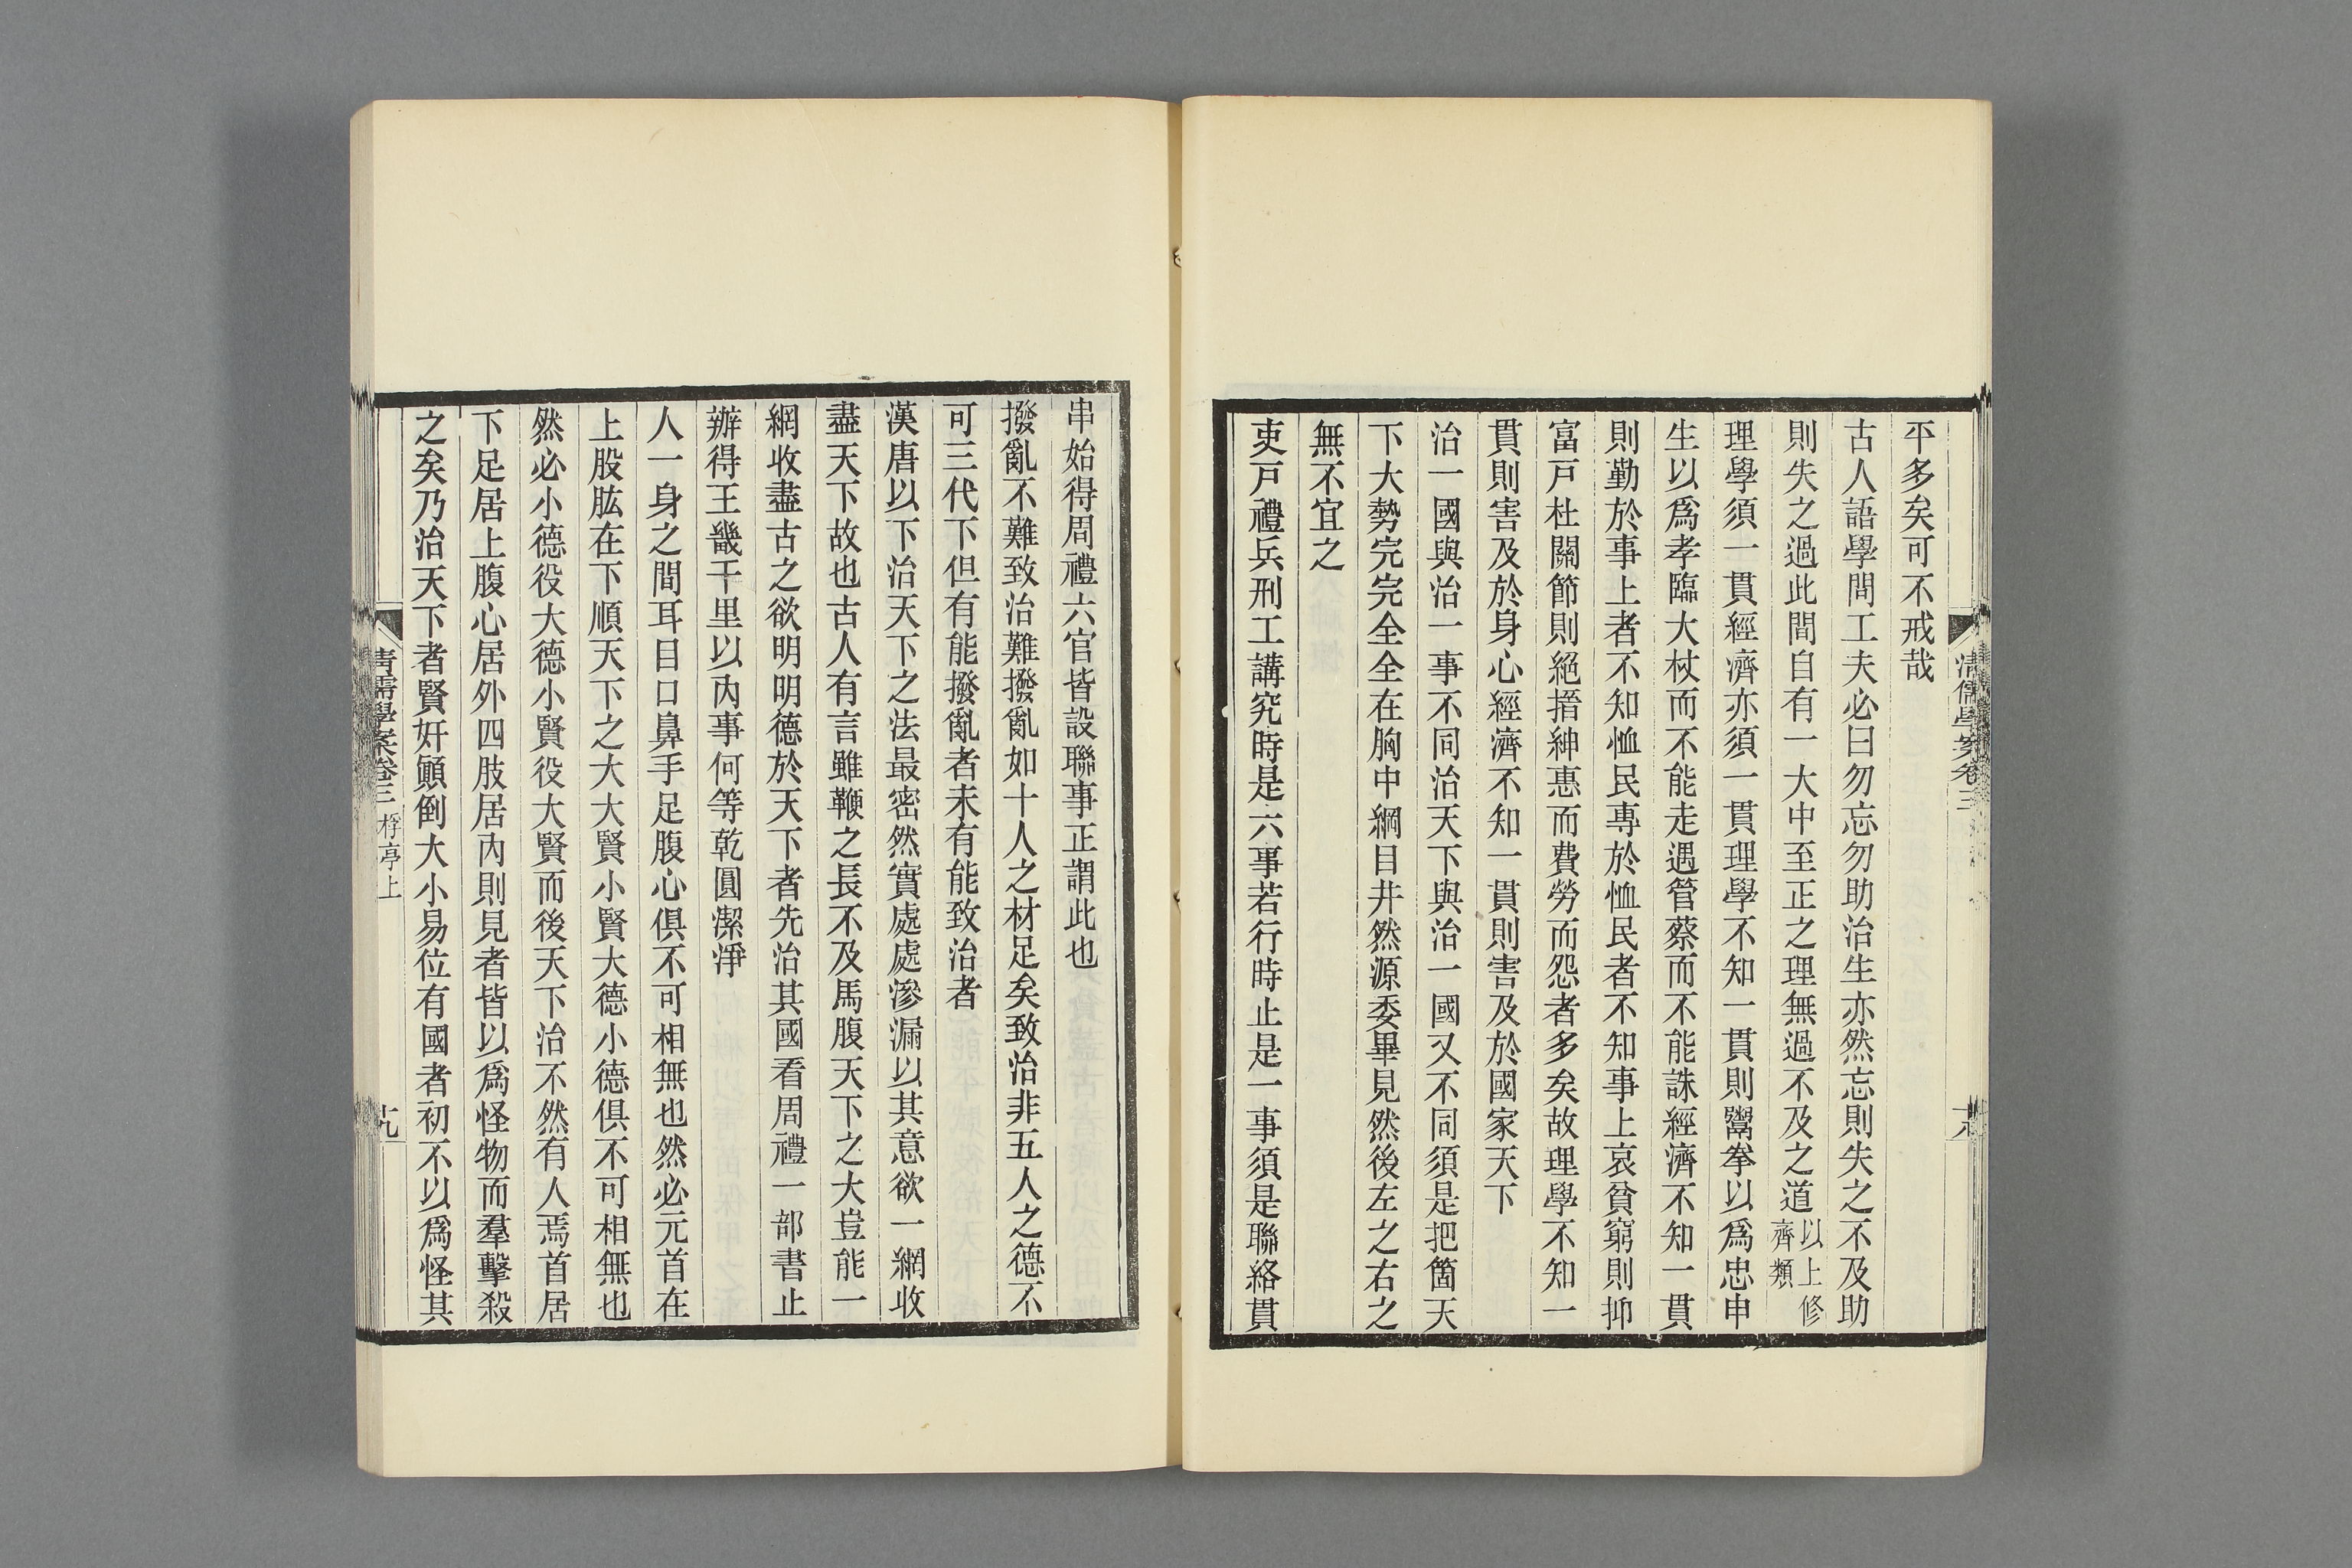 清儒學案卷三
平多矣可不戒哉
古人語學問工夫必曰勿忘勿助治生亦然忘則失之不及助
則失之過此間自有一大中至正之理無過不及之道以上修齊類
理學須一貫經濟亦須一貫理學不知一貫則鬻拳以爲忠申
生以爲孝臨大杖而不能走遇管蔡而不能誅經濟不知一貫
則勤於事上者不知恤民專於恤民者不知事上哀貧窮則抑
富戸杜關節則絕搢紳惠而費勞而怨者多矣故理學不知一
貫則害及於身心經濟不知一貫則害及於國家天下
治一國與治一事不同治天下與治一國又不同須是把箇天
下大勢完完全全在胸中綱目井然源委畢見然後左之右之
無不宜之
吏戸禮兵刑工講究時是六事若行時止是一事須是聯絡貫
串始得周禮六官皆設聯事正謂此也
撥亂不難致治難撥亂如十人之材足矣致治非五人之德不
可三代下但有能撥亂者未有能致治者
漢唐以下治天下之法最密然實處處滲漏以其意欲一網收
盡天下故也古人有言雖鞭之長不及馬腹天下之大豈能一
網收盡古之欲明明德於天下者先治其國看周禮一部書止
辦得王畿千里以內事何等乾圓潔淨
人一身之間耳目口鼻手足腹心俱不可相無也然必元首在
上股肱在下順天下之大大賢小賢大德小德俱不可相無也
然必小德役大德小賢役大賢而後天下治不然有人焉首居
下足居上腹心居外四肢居內則見者皆以爲怪物而羣擊殺
之矣乃治天下者賢奸顚倒大小易位有國者初不以爲怪其
清儒學案卷三 桴亭上
十九